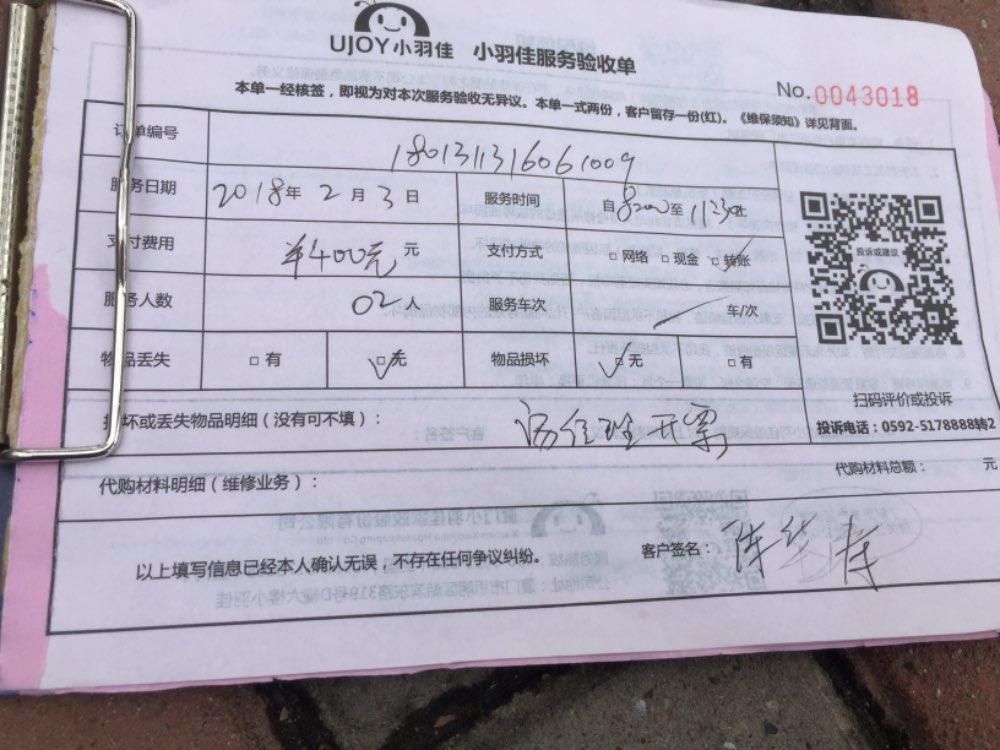 UJOY小羽佳 小羽佳服务验收单
No.0043018
本单一经核签，即视为对本次服务验收无异议。本单一式两份，客户留存一份(红)。《维保须知》详见背面。
订单编号 1801311316061009
服务日期 2018年 2月 3日 服务时间 自 至
支付费用 ¥400元 元 支付方式 □网络 □现金 □转账
投诉或建议
服务人数 02人 服务车次 车/次
物品丢失 □有 □无 物品损坏 □无 □有
扫码评价或投诉
投诉电话：0592-5178888转2
损坏或丢失物品明细（没有可不填）： 开票
代购材料明细（维修业务）： 代购材料总额： 元
以上填写信息已经本人确认无误，不存在任何争议纠纷。 客户签名：